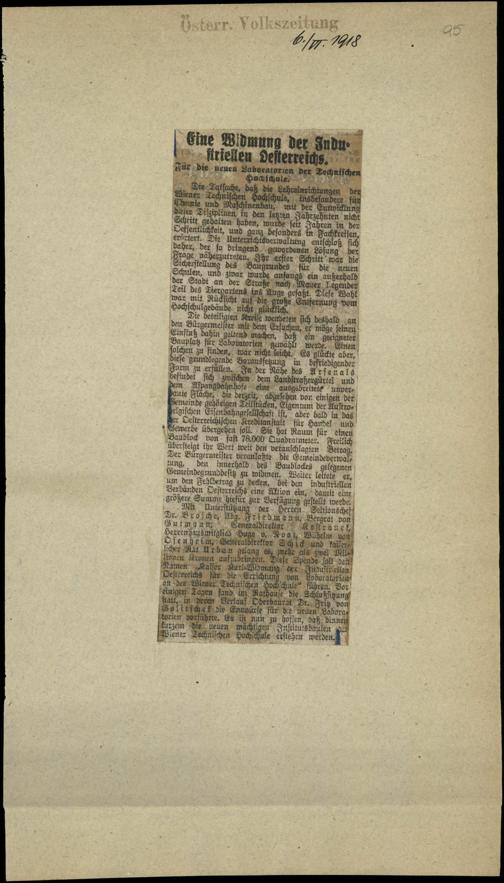 Österr. Volkszeitung
6./VI. 1918
95
Eine Widmung der Indu-
striellen Oesterreichs.
Für die neuen Laboratorien der Technischen
Hochschule.
Die Tatsache, daß die Lehreinrichtungen der
Wiener Technischen Hochschule, insbesondere für
Chemie und Maschinenbau, mit der Entwicklung
dieser Disziplinen in den letzten Jahrzehnten nicht
Schritt gehalten haben, wurde seit Jahren in der
Oeffentlichkeit, und ganz besonders in Fachkreisen,
erörtert. Die Unterrichtsverwaltung entschloß sich
daher, der so dringend gewordenen Lösung der
Frage näherzutreten. Ihr erster Schritt war die
Sicherstellung des Baugrundes für die neuen
Schulen, und zwar wurde anfangs ein außerhalb
der Stadt an der Straße nach Mauer legender
Teil des Tiergartens ins Auge gefaßt. Diese Wahl
war mit Rücksicht auf die große Entfernung vom
Hochschulgebäude nicht glücklich.
Die beteiligten Kreise wendeten sich deshalb an
den Bürgermeister mit dem Ersuchen, er möge seinen
Einfluß dahin geltend machen, daß ein geeigneter
Bauplatz für Laboratorien gewählt werde. Einen
solchen zu finden, war nicht leicht. Es glückte aber,
diese grundlegende Voraussetzung in befriedigender
Form zu erfüllen. In der Nähe des Arsenals
befindet sich zwischen dem Landstraßergürtel und
dem Aspangbahnhofe eine ausgebreitete unver-
baute Fläche, die derzeit, abgesehen von einigen der
Gemeinde gehörigen Teilstücken, Eigentum der Austro-
belgischen Eisenbahngesellschaft ist, aber bald in das
der Oesterreichischen Kreditanstalt für Handel und
Gewerbe übergehen soll. Sie hat Raum für einen
Baublock von fast 78.000 Quadratmeter. Freilich
übersteigt ihr Wert weit den veranschlagten Betrag.
Der Bürgermeister veranlaßte die Gemeindeverwal-
tung, den innerhalb des Baublockes gelegenen
Gemeindegrundbesitz zu widmen. Weiter leitete er,
um den Fehlbetrag zu decken, bei den industriellen
Verbänden Oesterreichs eine Aktion ein, damit eine
größere Summe hiefür zur Verfügung gestellt werde.
Mit Unterstützung der Herren Sektionschef
Dr. Brosche, Abg. Friedmann, Bergrat von
Gutmann, Generaldirektor Kestranek,
Herrenhausmitglied Hugo v. Noot, Wilhelm von
Ofenheim, Generaldirektor Schick und kaiser-
licher Rat Urban gelang es, mehr als zwei Mil-
lionen Kronen aufzubringen. Diese Spende soll den
Namen „Kaiser Karl-Widmung der Industriellen
Oesterreichs für die Errichtung von Laboratorien
an der Wiener Technischen Hochschule" führen. Vor
einigen Tagen fand im Rathause die Schlußsitzung
statt, in deren Verlauf Oberbaurat Dr. Fritz von
die Entwürfe für die neuen Labora-
torien vorführte. Es ist nun zu hoffen, daß binnen
kurzem die neuen mächtigen Institutsbauten der
Wiener Technischen Hochschule erstehen werden.